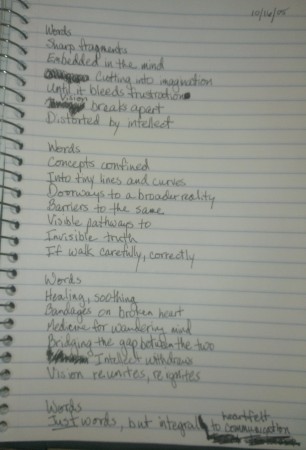 10/16/05
Words
Sharp fragments
Embedded in the mind
Cutting into imagination
Until it bleeds frustration
Vision breaks apart
Distorted by intellect
Words
Concepts confined
Into tiny lines and curves
Doorways to a broader reality
Barriers to the same
Visible pathways to
Invisible truth
If walk carefully, correctly
Words
Healing, soothing
Bandages on broken heart
Medicine for wandering mind
Bridging the gap between the two
Intellect withdraws
Vision reunites, reignites
Words
Just words, but integral to heartfelt
communication